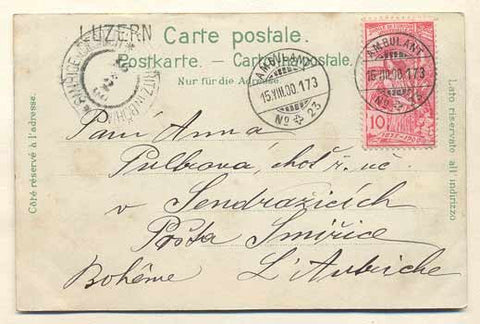 LUZERN
Carte postale.
Postkarte. — Cartolina postale.
Nur für die Adresse.
AMBULANT
15.VIII.00.173
No 23
AMBULANT
15.VIII.00.173
No 23
10
Paní Anna
Pulbová, choť ř. uč.
v Sendražicích
Pošta Smiřice
Bohême L'Autriche
Côté réservé à l'adresse.
Lato riservato all indirizzo